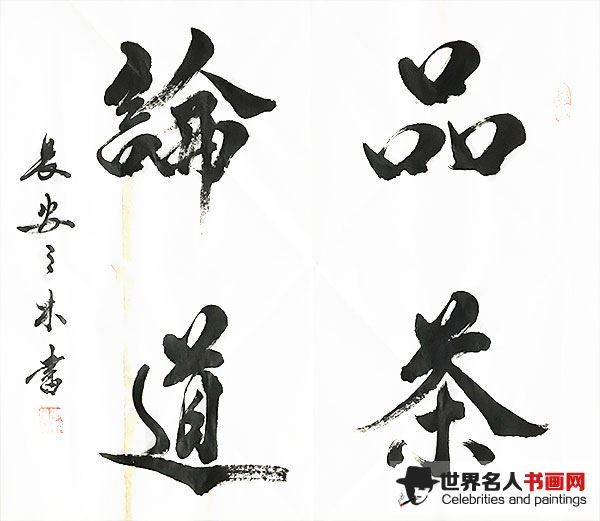 品茶
論道
長安之林書
世界名人书画网
Celebrities and paintings